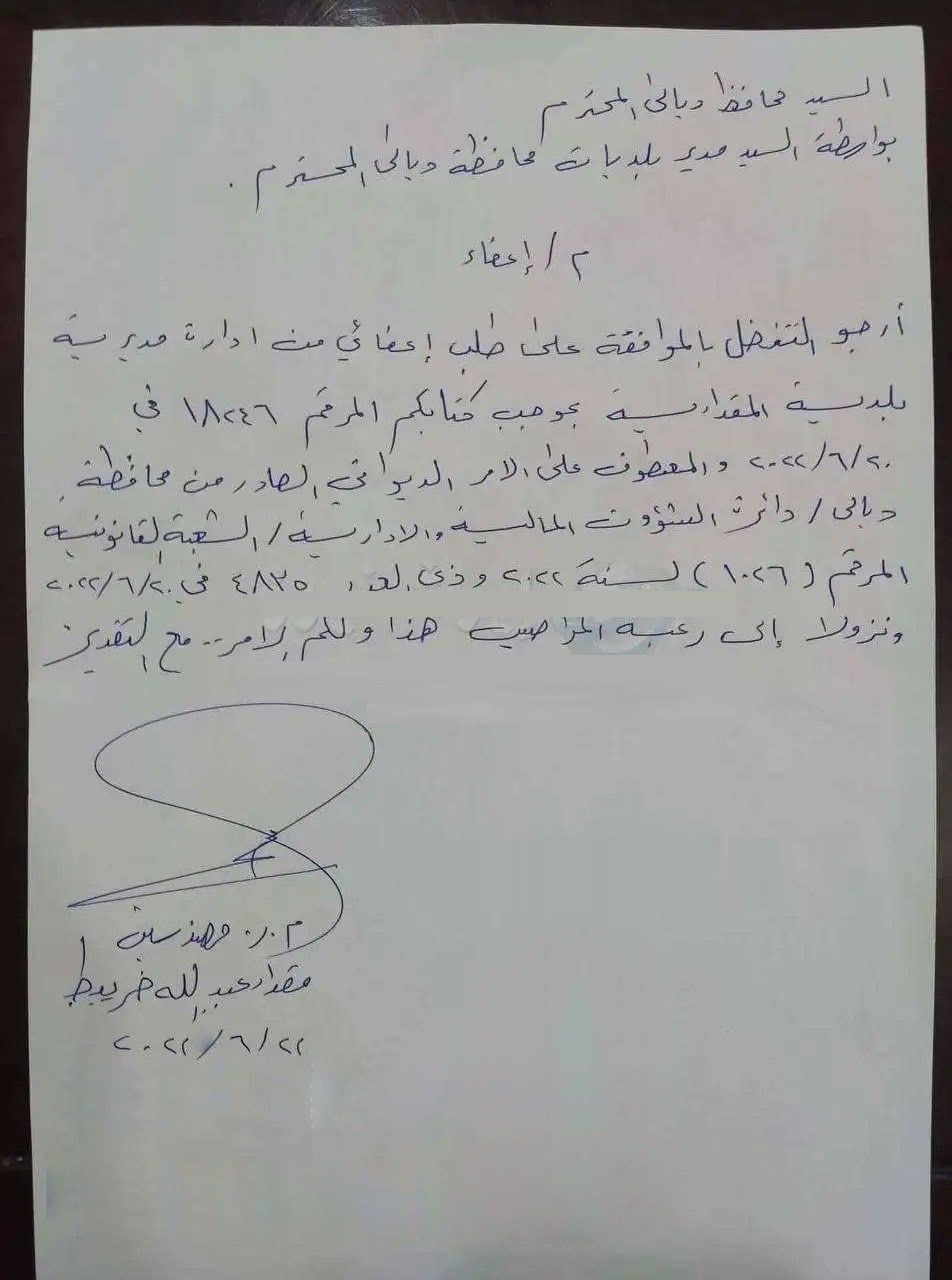 السيد محافظ ديالى المحترم
بواسطة السيد مدير بلديات محافظة ديالى المحترم .
م / إعفاء
أرجو التفضل بالموافقة على طلب إعفائي من ادارة مديرية
بلدية المقدادية بموجب كتابكم المرقم ١٨٢٤٦ في
٢٠٢٢/٦/٢٠ والمعطوف على الامر الديواني الصادر من محافظة
ديالى / دائرة الشؤون المالية والادارية / الشعبة القانونية
المرقم (١٠٢٦) لسنة ٢٠٢٢ وذي العدد ٤٨٣٥ في ٢٠٢٢/٦/٢٠
ونزولا إلى رغبة المراجعين هذا ولكم الامر .. مع التقدير
م.ر. مهندسين
مقداد عبد الله خريبط
٢٠٢٢/٦/٢٢